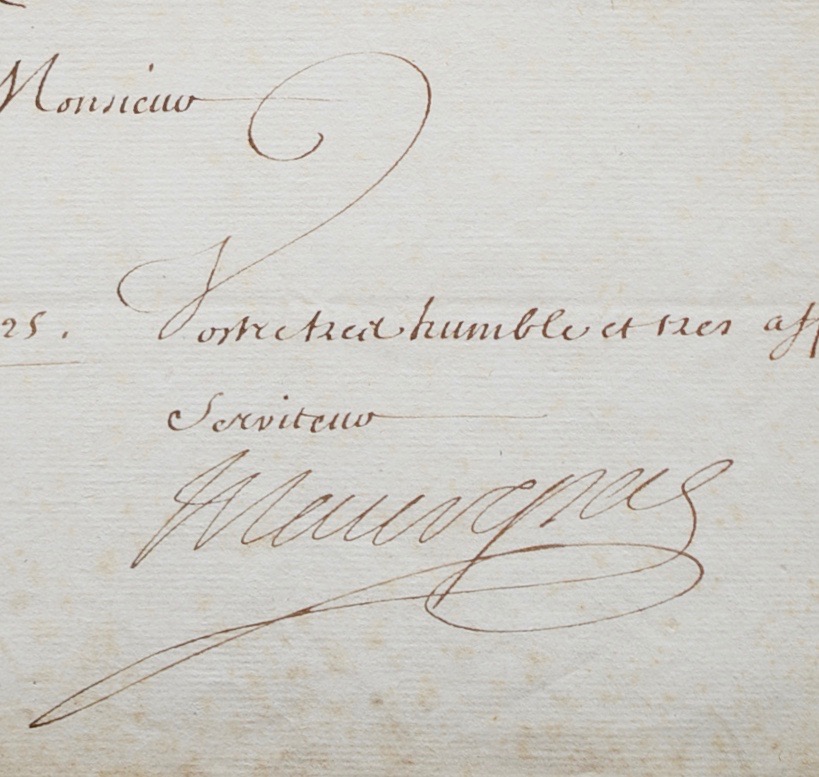 Monsieur
25. Vostre tres humble et tres aff
Serviteur
Maurepas